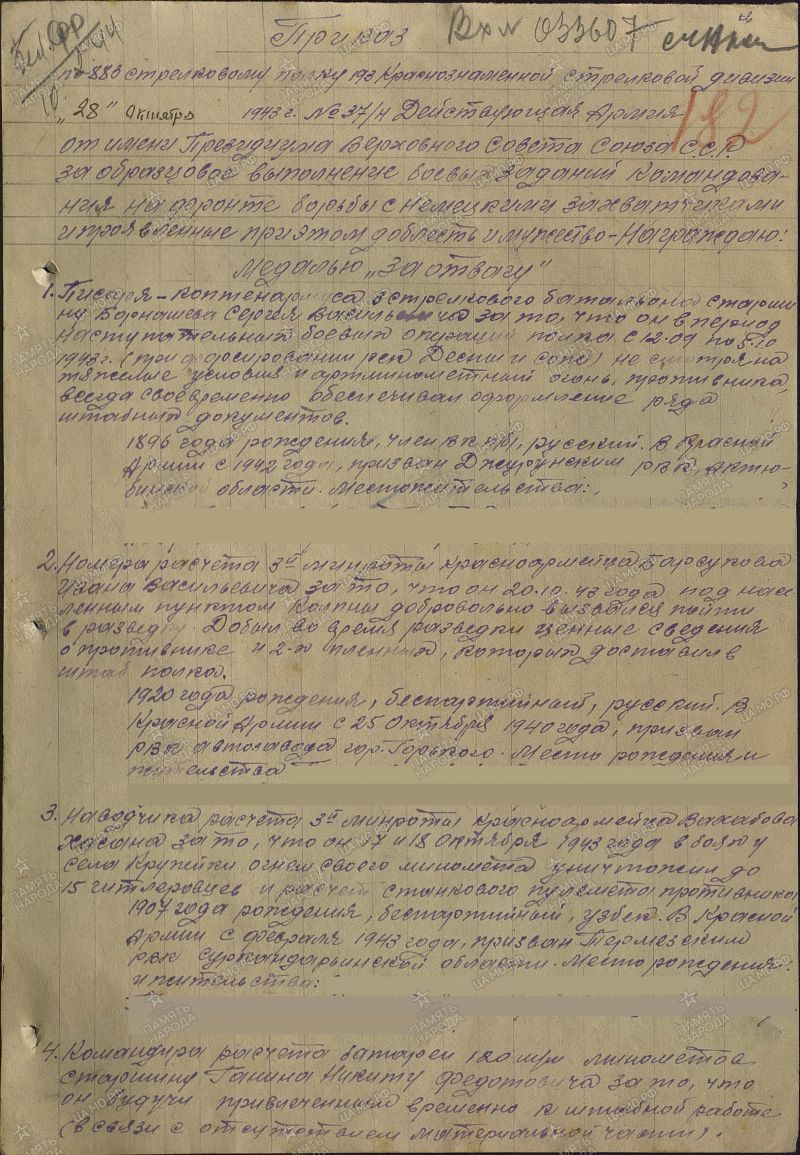 Приказ
Вх № 033607
по 883 стрелковому полку 193 Краснознаменной стрелковой дивизии
"28" октября 1943 г. № 37/н Действующая Армия
182
от имени Президиума Верховного Совета Союза С.С.Р.
за образцовое выполнение боевых заданий Командова-
ния на фронте борьбы с немецкими захватчиками
и проявленные при этом доблесть и мужество - Награждаю:
Медалью „За отвагу"
1. Писаря - каптенармуса 3 стрелкового батальона старши
ну Сергея Васильевича за то, что он в период
наступательных боевых операций полка с 12.09 по 5.10
1943 г. (при форсировании рек Десны и Сож) не смотря на
тяжелые условия и артминометный огонь, противника,
всегда своевременно обеспечивал оформление ряда
штабных документов.
1896 года рождения, член ВКП(б), русский. В Красной
Армии с 1942 года, призван Джурунским РВК, Актю-
бинской области. Местожительства:
2. Номера расчета 3й минроты красноармейца Барсукова
Ивана Васильевича за то, что он 20.10.43 года под насе-
ленным пунктом Колпны добровольно вызвался пойти
в разведку. Добыл во время разведки ценные сведения
о противнике и 2-х пленных, которых доставил в
штаб полка.
1920 года рождения, беспартийный, русский. В
Красной Армии с 25 октября 1940 года, призван
РВК автозавода гор. Горького. Место рождения и
жительства
3. Наводчика расчета 3й минроты красноармейца Вахабова
Хасана за то, что он 17 и 18 октября 1943 года в бою у
села Крупейки огнем своего миномета уничтожил до
15 гитлеровцев и расчет станкового пулемета противника
1907 года рождения, беспартийный, узбек. В Красной
Армии с февраля 1943 года, призван Термезским
РВК Сурхандарьинской области. Место рождения
и жительства:
4. Командира расчета батареи 120 м/м минометов
старшину Ганина Никиту Федотовича за то, что
он будучи привлеченным временно к штабной работе
(в связи с отсутствием материальной части).
ПАМЯТЬ НАРОДА
ЦАМО.РФ